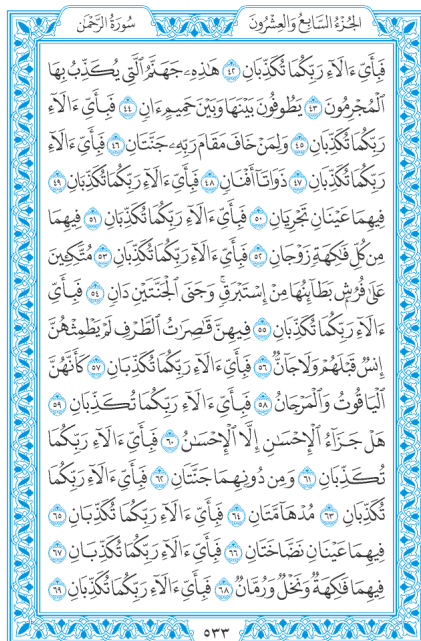 الجُزْءُ السَّابِعُ وَالعِشْرُونَ
سُورَةُ الرَّحْمٰن
فَبِأَيِّ ءَالَآءِ رَبِّكُمَا تُكَذِّبَانِ ٤٢ هَٰذِهِۦ جَهَنَّمُ ٱلَّتِى يُكَذِّبُ بِهَا
ٱلْمُجْرِمُونَ ٤٣ يَطُوفُونَ بَيْنَهَا وَبَيْنَ حَمِيمٍ ءَانٍ ٤٤ فَبِأَىِّ ءَالَآءِ
رَبِّكُمَا تُكَذِّبَانِ ٤٥ وَلِمَنْ خَافَ مَقَامَ رَبِّهِۦ جَنَّتَانِ ٤٦ فَبِأَىِّ ءَالَآءِ
رَبِّكُمَا تُكَذِّبَانِ ٤٧ ذَوَاتَآ أَفْنَانٍ ٤٨ فَبِأَىِّ ءَالَآءِ رَبِّكُمَا تُكَذِّبَانِ ٤٩
فِيهِمَا عَيْنَانِ تَجْرِيَانِ ٥٠ فَبِأَىِّ ءَالَآءِ رَبِّكُمَا تُكَذِّبَانِ ٥١ فِيهِمَا
مِن كُلِّ فَٰكِهَةٍ زَوْجَانِ ٥٢ فَبِأَىِّ ءَالَآءِ رَبِّكُمَا تُكَذِّبَانِ ٥٣ مُتَّكِـِٔينَ
عَلَىٰ فُرُشٍۭ بَطَآئِنُهَا مِنْ إِسْتَبْرَقٍۚ وَجَنَى ٱلْجَنَّتَيْنِ دَانٍ ٥٤ فَبِأَىِّ
ءَالَآءِ رَبِّكُمَا تُكَذِّبَانِ ٥٥ فِيهِنَّ قَٰصِرَٰتُ ٱلطَّرْفِ لَمْ يَطْمِثْهُنَّ
إِنسٌ قَبْلَهُمْ وَلَا جَآنٌّ ٥٦ فَبِأَىِّ ءَالَآءِ رَبِّكُمَا تُكَذِّبَانِ ٥٧ كَأَنَّهُنَّ
ٱلْيَاقُوتُ وَٱلْمَرْجَانُ ٥٨ فَبِأَىِّ ءَالَآءِ رَبِّكُمَا تُكَذِّبَانِ ٥٩
هَلْ جَزَآءُ ٱلْإِحْسَٰنِ إِلَّا ٱلْإِحْسَٰنُ ٦٠ فَبِأَىِّ ءَالَآءِ رَبِّكُمَا
تُكَذِّبَانِ ٦١ وَمِن دُونِهِمَا جَنَّتَانِ ٦٢ فَبِأَىِّ ءَالَآءِ رَبِّكُمَا
تُكَذِّبَانِ ٦٣ مُدْهَآمَّتَانِ ٦٤ فَبِأَىِّ ءَالَآءِ رَبِّكُمَا تُكَذِّبَانِ ٦٥
فِيهِمَا عَيْنَانِ نَضَّاخَتَانِ ٦٦ فَبِأَىِّ ءَالَآءِ رَبِّكُمَا تُكَذِّبَانِ ٦٧
فِيهِمَا فَٰكِهَةٌ وَنَخْلٌ وَرُمَّانٌ ٦٨ فَبِأَىِّ ءَالَآءِ رَبِّكُمَا تُكَذِّبَانِ ٦٩
٥٣٣